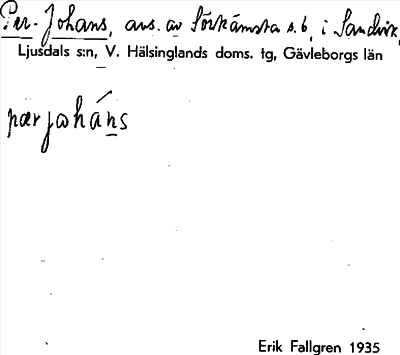 Per-Johans, avs. av Sörkämsta s. 6, i Sandvik,
Ljusdals s:n, V. Hälsinglands doms. tg, Gävleborgs län
pærjohá̱ns
Erik Fallgren 1935